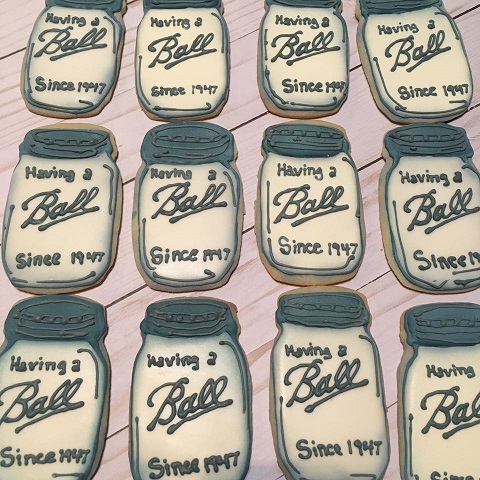 Having a
Ball
Since 1947
Having a
Ball
Since 1947
Having a
Ball
Since 1947
Having a
Ball
Since 1947
Having a
Ball
Since 1947
Having a
Ball
Since 1947
Having a
Ball
Since 1947
Having a
Ball
Since 19
Having a
Ball
Since 1947
Having a
Ball
Since 1947
Having a
Ball
Since 1947
Having a
Bal
Since